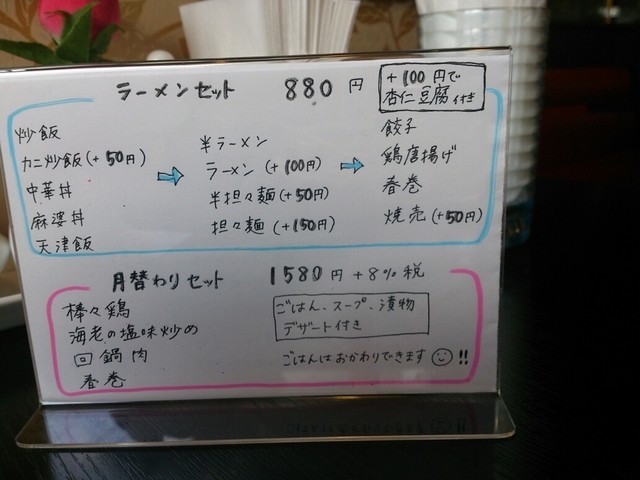 ラーメンセット 880円
+100円で
杏仁豆腐付き
炒飯
カニ炒飯(+50円)
中華丼
麻婆丼
天津飯
半ラーメン
ラーメン(+100円)
半担々麺(+50円)
担々麺(+150円)
餃子
鶏唐揚げ
春巻
焼売(+50円)
月替わりセット 1580円+8%税
棒々鶏
海老の塩味炒め
回鍋肉
春巻
ごはん、スープ、漬物
デザート付き
ごはんはおかわりできます!!